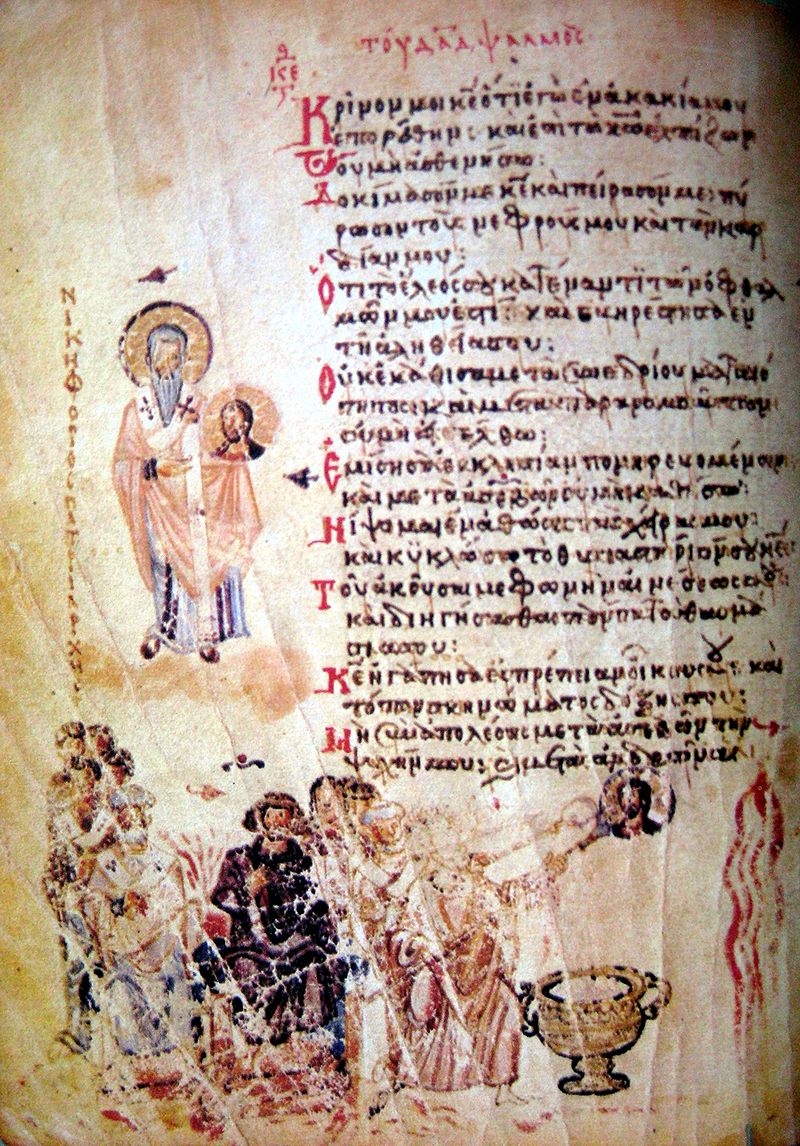 τοῦ δᾱδ ψαλμος
ΚΕ
Κρῖνόν μοι κε ὅτι ἐγὼ ἐν ἀκακία μου
ἐπορεύθην· καὶ ἐπὶ τῶ κω ἐλπίζων
οὐ μὴ ἀσθενήσω:
Δοκίμασόν με κε καὶ πείρασόν με· πύ
ρωσον τοὺς νεφρούς μου καὶ τὴν καρ
δίαν μου:
Ὅτι τὸ ἔλεός σου κατέναντι τῶν ὀφθαλ
μῶν μου ἐστί· καὶ εὐηρέστησα ἐν
τῆ ἀληθεία σου:
Οὐκ ἐκάθισα μετὰ συνεδρίου ματαιό
τητος· καὶ μετὰ παρανομούντων
οὐ μὴ εἰσέλθω:
Ἐμίσησα ἐκκλησίαν πονηρευομένων
καὶ μετὰ ἀσεβῶν οὐ μὴ καθίσω:
Νίψομαι ἐν ἀθώοις τὰς χεῖρας μου·
καὶ κυκλώσω τὸ θυσιαστήριόν σου κε
Τοῦ ἀκοῦσαι με φωνῆς αἰνέσεως σου
καὶ διηγήσασθαι πάντα τὰ θαυμά
σιά σου:
Κε ἠγάπησα εὐπρέπειαν οἴκου σου· καὶ
τόπον σκηνώματος δόξης σου:
Μὴ συναπολέσης μετὰ ἀσεβῶν τὴν
ψυχήν μου·
ΝΙΚΗΦΟΡΟC